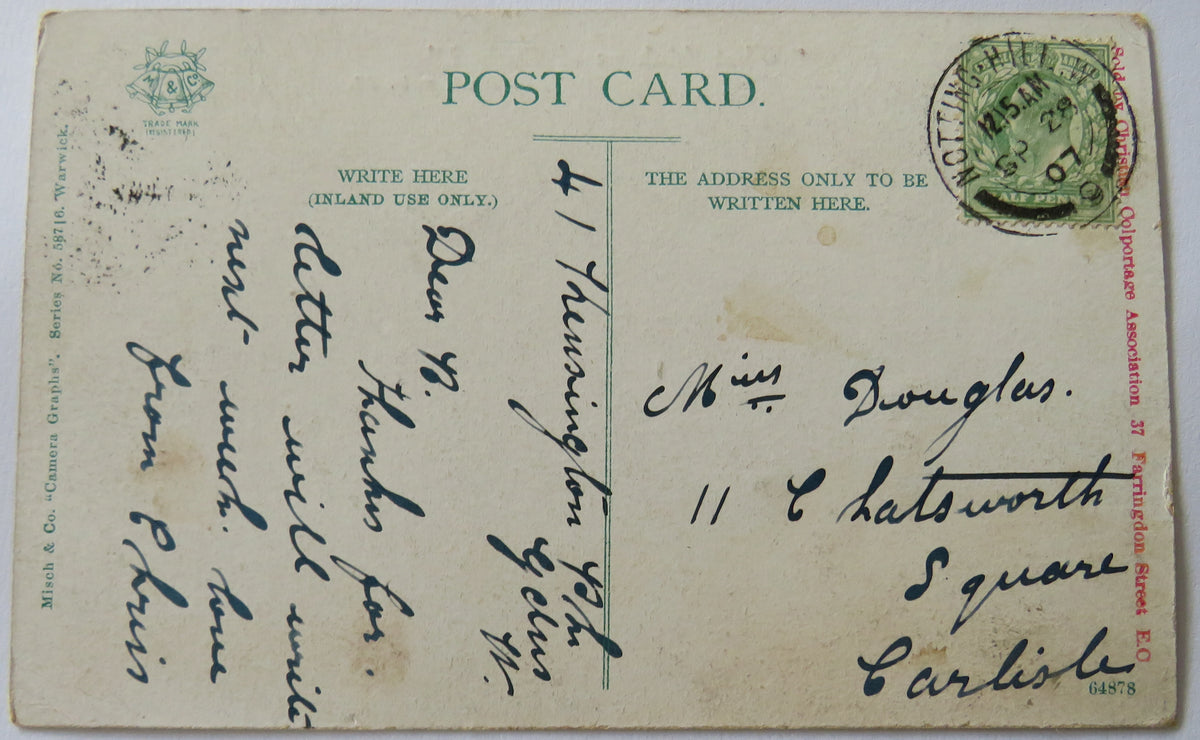 POST CARD.
M & Co
TRADE MARK
(REGISTERED)
WRITE HERE
(INLAND USE ONLY.)
THE ADDRESS ONLY TO BE
WRITTEN HERE.
NOTTING-HILL. W
12.15 AM
SP 28
07
HALF PENNY
41 Khensington Pk
Gdns
W.
Dear B.
Thanks for.
letter will write
next week. love
from Chris
Miss Douglas.
11 Chatsworth
Square
Carlisle
64878
Misch & Co. "Camera Graphs". Series No. 587/6. Warwick.
Sold by Christian Colportage Association 37 Farringdon Street E.C